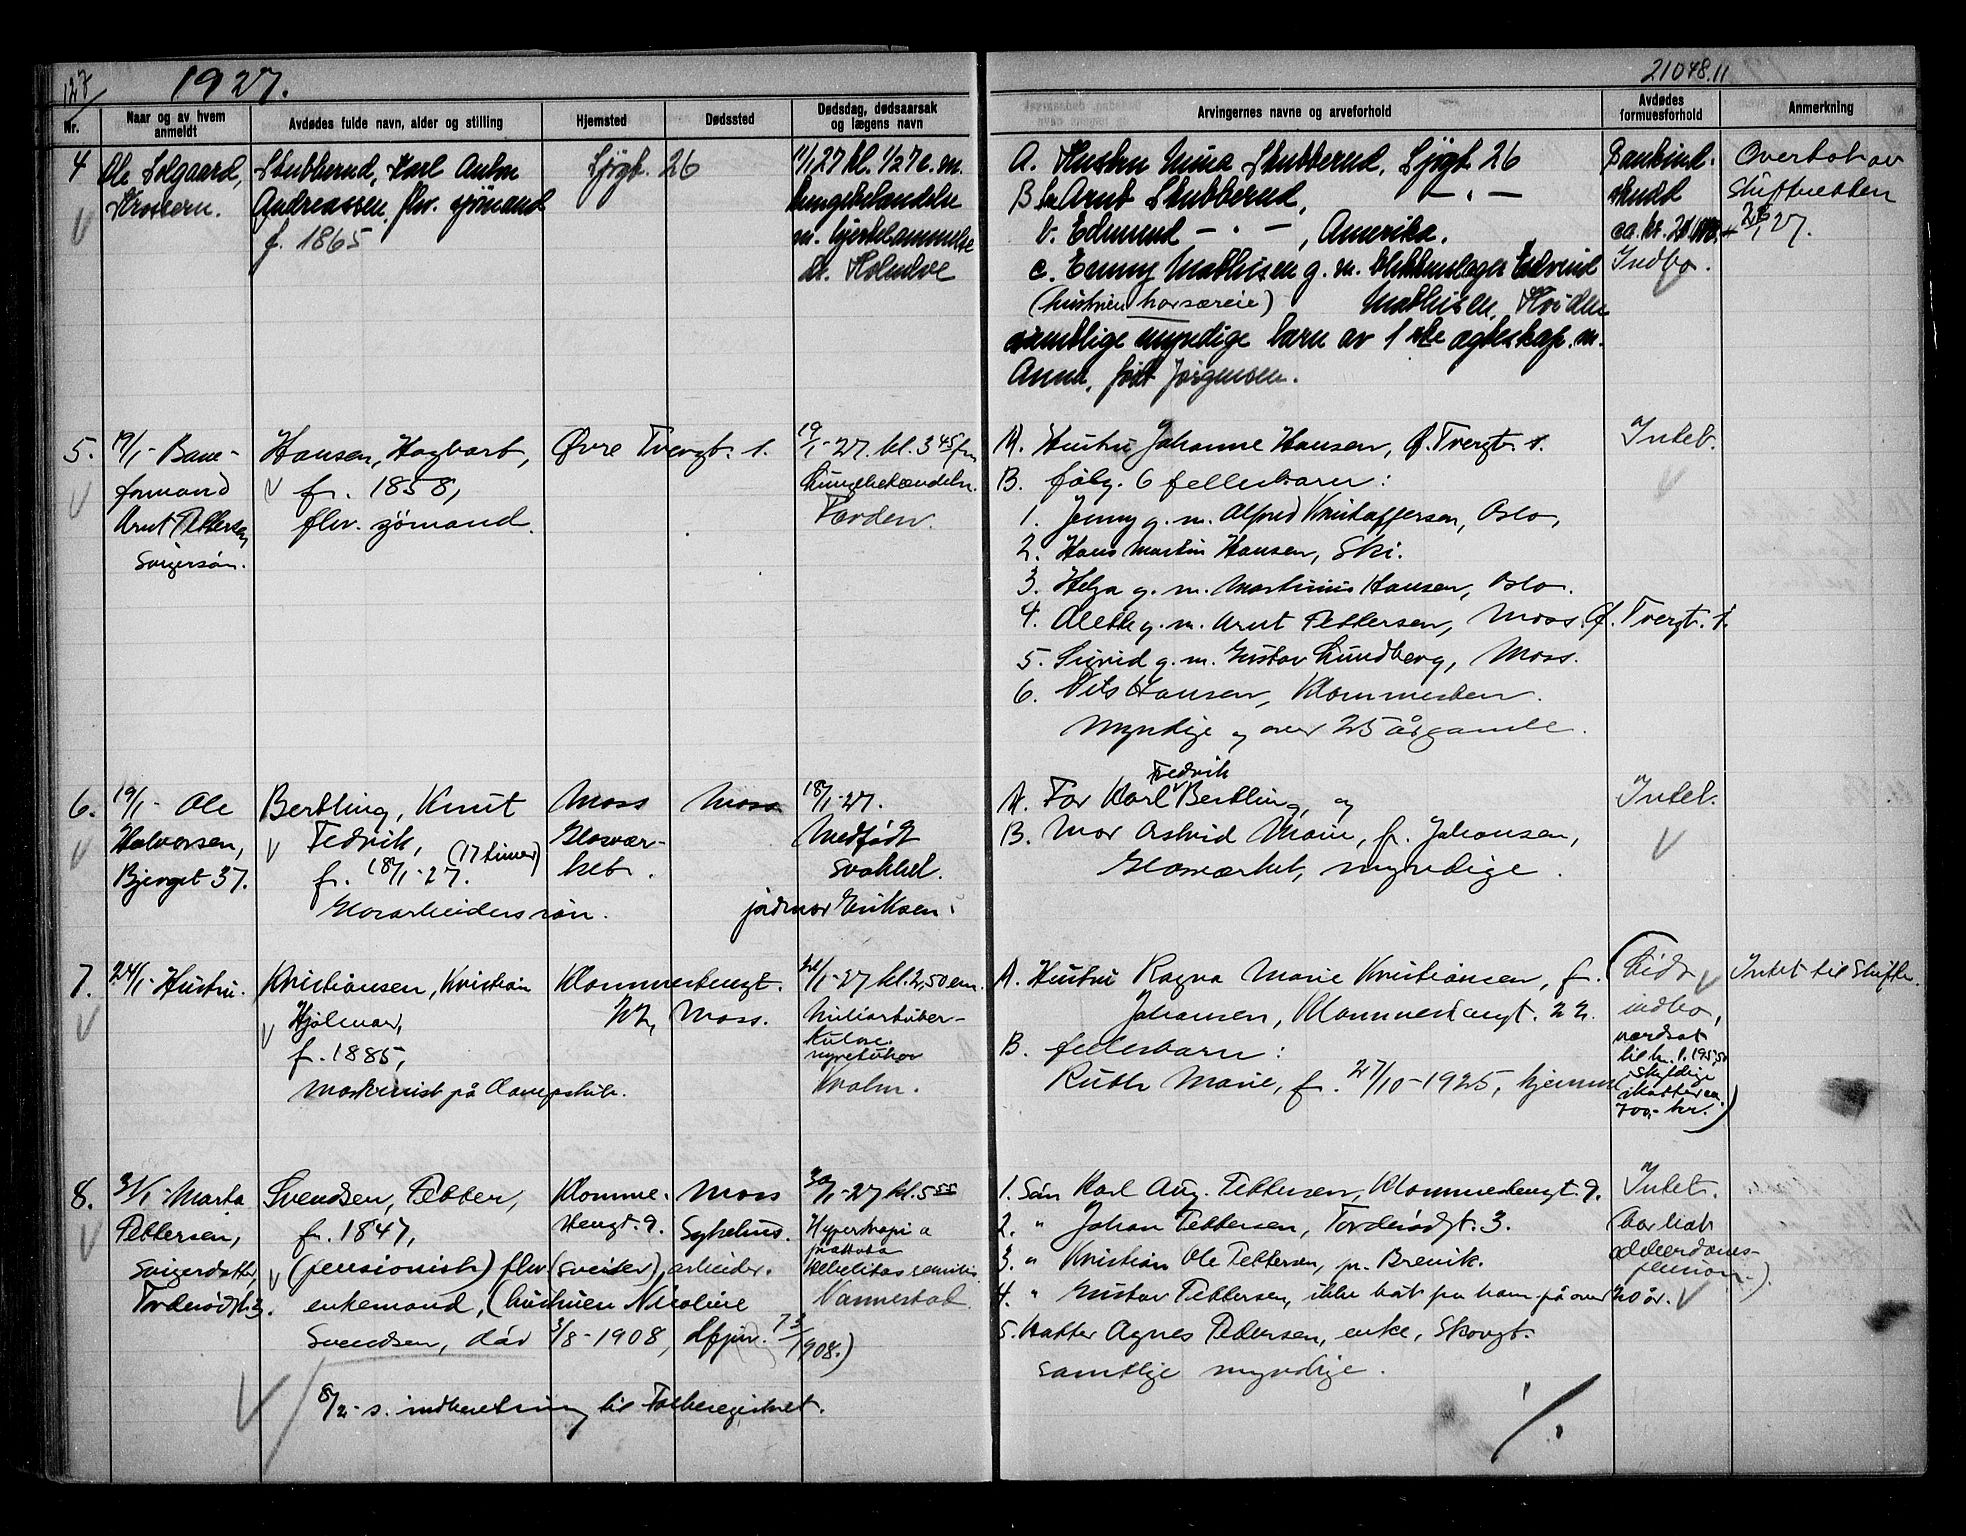 127
1927.
21048.11
Nr.
Naar og av hvem anmeldt
Avdødes fulde navn, alder og stilling
Hjemsted
Dødssted
Dødsdag, dødsaarsak og lægens navn
Arvingernes navne og arveforhold
Avdødes formuesforhold
Anmerkning
4
Ole Solgaard,
Krossern.
Stubberud, Karl Anton
Andreassen, flv. sjømand
f. 1865
Sjøgt. 26
11/1 27 kl. 1/2 7 e.m.
lungebetændelse
m. hjertelammelse
dr. Holmboe
A. Hustru Mina Stubberud, Sjøgt. 26
B a Arnt Stubberud, — " —
b. Edmund — " —, Amerika.
c. Emmy Mathisen g. m. blikkenslager Edvind
(hustruen har særeie) Mathisen, Hviden
samtlige myndige barn av 1ste egteskap m.
Anna, født Jørgensen.
Bankind-
skudd
ca. kr.
Indbo.
Overtat av
skifteretten
27.
5.
19/1- Bane-
formand
Arnt Pettersen,
Svigersøn.
Hansen, Hagbart,
fr. 1858,
flv. sjømand.
Øvre Tvergt. 1.
19/1-27 kl. 3 45 fm
Lungebetændelse.
Tvedten.
A. Hustru Johanne Hansen, Ø. Tvergt. 1.
B. følg. 6 fellesbarn:
1. Jenny g. m. Alfred Kristoffersen, Oslo,
2. Hans Martin Hansen, Ski.
3. Helga g. m. Martinius Hansen, Oslo.
4. Alette g. m. Arnt Pettersen, Moss. Ø. Tvergt. 1.
5. Sigrid g. m. Gustav Lundberg, Moss.
6. Nils Hansen, Klommesten.
Myndige og over 25 år gamle.
Intet.
6.
19/1- Ole
Halvorsen,
Bjerget 37.
Bertling, Knut
Fedrik,
fr. 18/1-27. (17 timer)
Glasarbeiders søn.
Moss
Glasvær-
ket.
Moss
18/1-27.
Medfødt
svakhet.
jordmor Eriksen.
A. Far Karl Fredrik Bertling, og
B. Mor Astrid Marie, fr. Johansen,
Glasværket, myndige.
Intet.
7.
24/1- Hustru.
Kristiansen, Kristian
Hjalmar,
fr. 1885,
Maskinist på Dampskib.
Klommestengt.
22, Moss.
/1-27 kl. 2,50 em.
Miliærtuber-
kulose.
Kvalm.
A. Hustru Ragna Marie Kristiansen, fr.
Johansen, Klommestengt. 22.
B. fellesbarn:
Ruth Marie, fr. 27/10-1925, hjemme
(Lidt
indbo,
værdsat
til kr.
skyldige
skatter ca.
700,- kr.)
Intet til Skifte.
8.
31/1- Marta
Pettersen,
Svigerdatter,
Tordenødgt. 3.
Svendsen, Petter,
fr. 1847,
(pensionist) flv (sveiser) arbeider.
enkemand, (hustruen Nicoline
Svendsen, død 3/8-1908,
908.)
Klomme-
stengt. 9.
Moss
Sykehus.
30/1-27 kl. 5 55
Hypertropia
prostata
debilitas senilis
Vannestad
8/2- s. indberetning til Folkeregistret.
1. Søn Karl Aug. Pettersen, Klommestengt. 9.
2. " Johan Pettersen, Tordenødgt. 3.
3. " Kristian Ole Pettersen, pr. Brevik.
4. " Gustav Pettersen, ikke hørt fra ham på over 20 år.
5. Datter Agnes Pedersen, enke, Skovgt.
samtlige myndige.
Intet.
(har hat
alderdoms-
pension.)